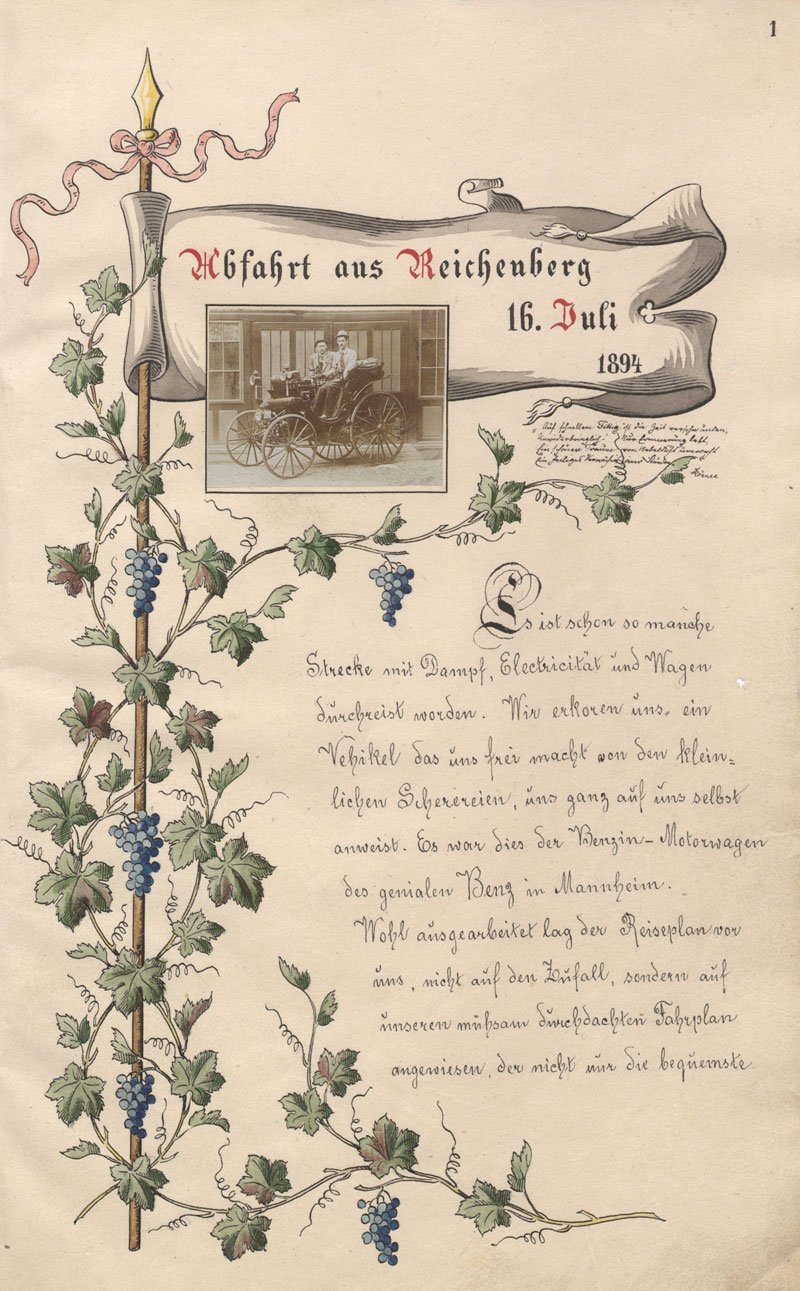 1
Abfahrt aus Reichenberg
16. Juli
1894
"Auf schnellem Fittig ist die Zeit verschwunden,
Unwiederbringlich! Nur Erinnerung lebt.
Ein schöner Traum von Nebelduft umwebt
Ein
Es ist schon so manche
Strecke mit Dampf, Electricität und Wagen
durchreist worden. Wir erkoren uns, ein
Vehikel das uns frei macht von den klein=
lichen Scherereien, uns ganz auf uns selbst
anweist. Es war dies der Benzin-Motorwagen
des genialen Benz in Mannheim.
Wohl ausgearbeitet lag der Reiseplan vor
uns, nicht auf den Zufall, sondern auf
unseren mühsam durchdachten Fahrplan
angewiesen, der nicht nur die bequemste